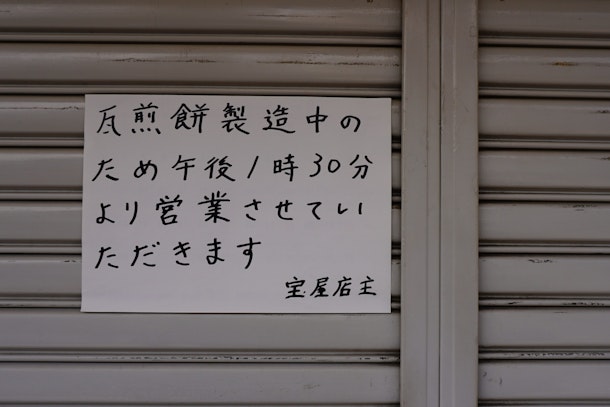 瓦煎餅製造中の
ため午後1時30分
より営業させてい
ただきます
宝屋店主